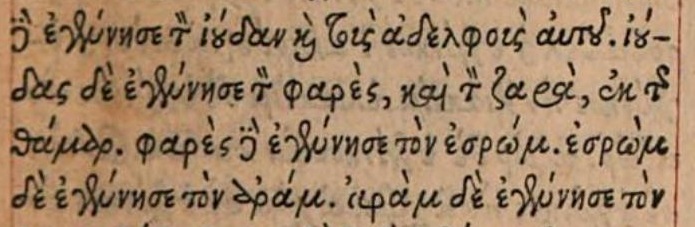 δὲ ἐγέννησε τὸν ἰούδαν καὶ τοὺς ἀδελφοὺς αὐτοῦ. ἰού-
δας δὲ ἐγέννησε τὸν φαρὲς, καὶ τὸν ζαρὰ, ἐκ τῆς
θάμαρ. φαρὲς δὲ ἐγέννησε τὸν ἐσρώμ. ἐσρὼμ
δὲ ἐγέννησε τὸν ἀράμ. ἀρὰμ δὲ ἐγέννησε τὸν